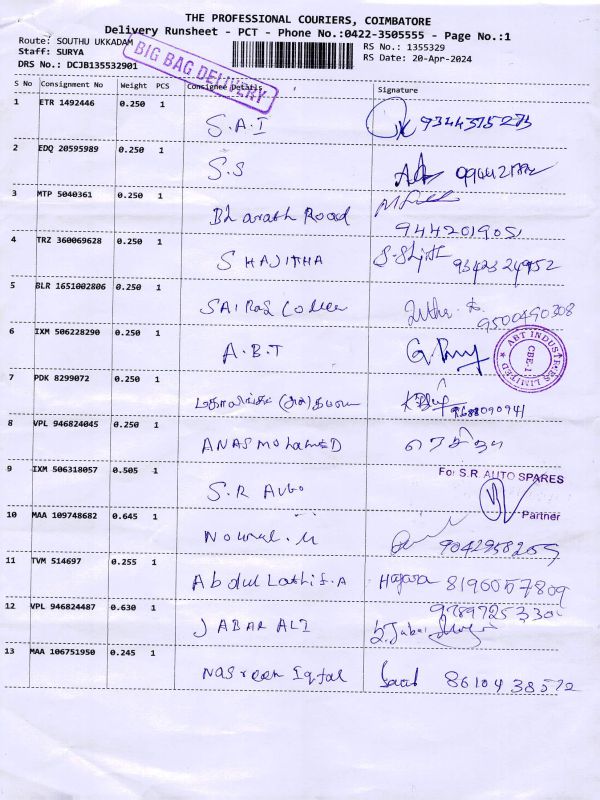 THE PROFESSIONAL COURIERS, COIMBATORE
Delivery Runsheet - PCT - Phone No.:0422-3505555 - Page No.:1
Route: SOUTHU UKKADAM
RS No.: 1355329
Staff: SURYA
RS Date: 20-Apr-2024
DRS No.: DCJB135532901
BIG BAG DELIVERY
S No Consignment No Weight PCS Consignee Details Signature
1 ETR 1492446 0.250 1 S.A.I 9344375273
2 EDQ 20595989 0.250 1 S.S
3 MTP 5040361 0.250 1 Bharath Road 944201905
4 TRZ 360069628 0.250 1 SHAJITHA 9342324952
5 BLR 1651002806 0.250 1 SAI 9500490308
6 IXM 506228290 0.250 1 A.B.T
ABT INDUSTRIES LIMITED
CBE-1
7 PDK 8299072 0.250 1
8 VPL 946824045 0.250 1 ANAS MOHAMED
9 IXM 506318057 0.505 1 S.R Auto
For S.R AUTO SPARES
Partner
10 MAA 109748682 0.645 1
11 TVM 514697 0.255 1 Abdul Lathif.A 8196057809
12 VPL 946824487 0.630 1 JABAR ALI
13 MAA 106751950 0.245 1 Nasreen Iqbal Saad 8610438572